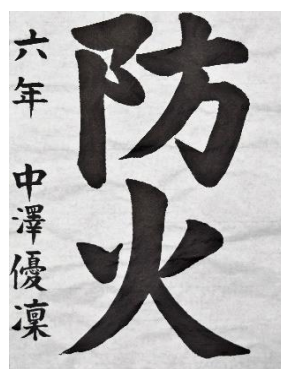 防火
六年 中澤優凜